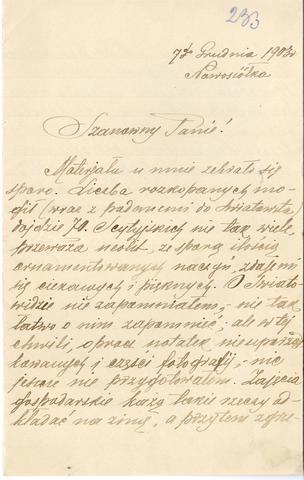 233
7go Grudnia 1903 r
Nowosiółka
Szanowny Panie!
Materjału u mnie zebrało się
sporo. Liczba rozkopanych mo-
gił (wraz z podanemi do Światowita)
dojdzie 70. Scytyjskich nie tak wiele,
przeważa neolit, ze sporą ilością
ornamentowanych naczyń, zdaje mi
się ciekawych i pięknych. O Świato-
widzie nie zapomniałem, - nie tak
łatwo o nim zapomnieć, ale w tej
chwili, oprócz notatek nieuporząd-
kowanych i części fotografij, - nic
jeszcze nie przygotowałem. Zajęcia
gospodarskie każą takie rzeczy od-
kładać na zimę, a przytem zgrze-